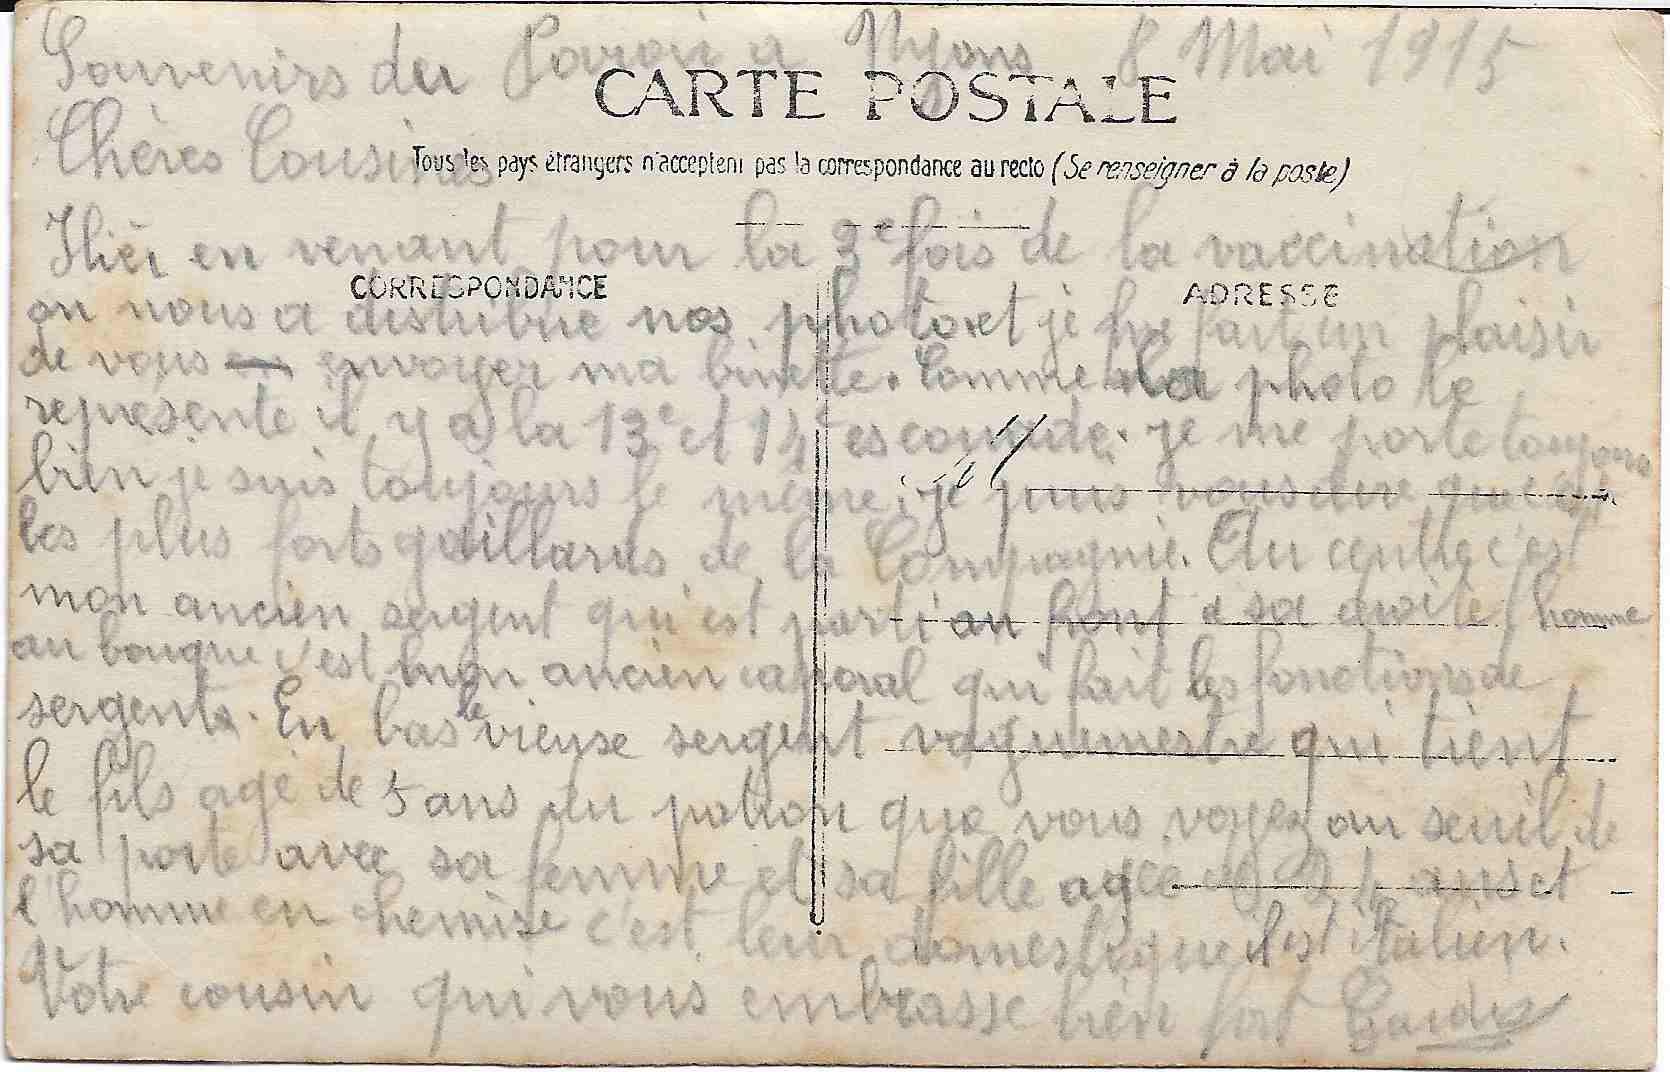 Souvenirs du a Nyons 8 Mai 1915
CARTE POSTALE
Chères Cousines
Tous les pays étrangers n'acceptent pas la correspondance au recto (Se renseigner à la poste)
Hièr en venant pour la 3e fois de la vaccination
CORRESPONDANCE
ADRESSE
on nous a distribué nos photo et je fait un plaisir
de vous envoyer ma binette. Comme la photo le
représente il y a la 13e et 14e escouade. je me porte toujours
bien je suis toujours le même. je puis vous dire que c'est
les plus forts gaillards de la Compagnie. Au centre c'est
mon ancien sergent qui est parti au front a sa droite l'homme
au bouque c'est mon ancien caporal qui fait les fonctions de
sergent. En bas le vieuse sergent vaguemestre qui tient
le fils agé de 5 ans du patron que vous voyez au seuil de
sa porte avec sa femme et sa fille agée de 24 ans et
l'homme en chemise c'est leur domestique il est italien.
Votre cousin qui vous embrasse bien fort